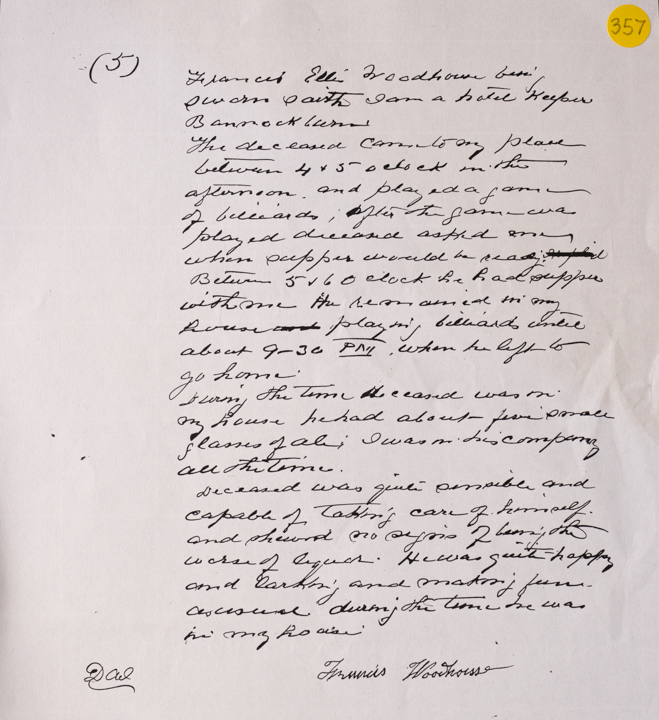 357
(5)
Francis Ellis Woodhouse being
sworn saith I am a hotel Keeper
Bannockburn
The deceased came to my place
between 4 & 5 oclock in the
afternoon. and played a game
of billiards; after the game was
played deceased asked me
when supper would be ready.
Between 5 & 6 O clock he had supper
with me He remained in my
house playing billiards until
about 9-30 PM. when he left to
go home.
During the time deceased was in
my house he had about five small
glasses of ale; I was in his company
all the time.
Deceased was quite sensible and
capable of taking care of himself.
and shewed no signs of being the
worse of liquor. He was quite happy
and larking and making fun
as usual during the time he was
in my house
Francis Woodhouse